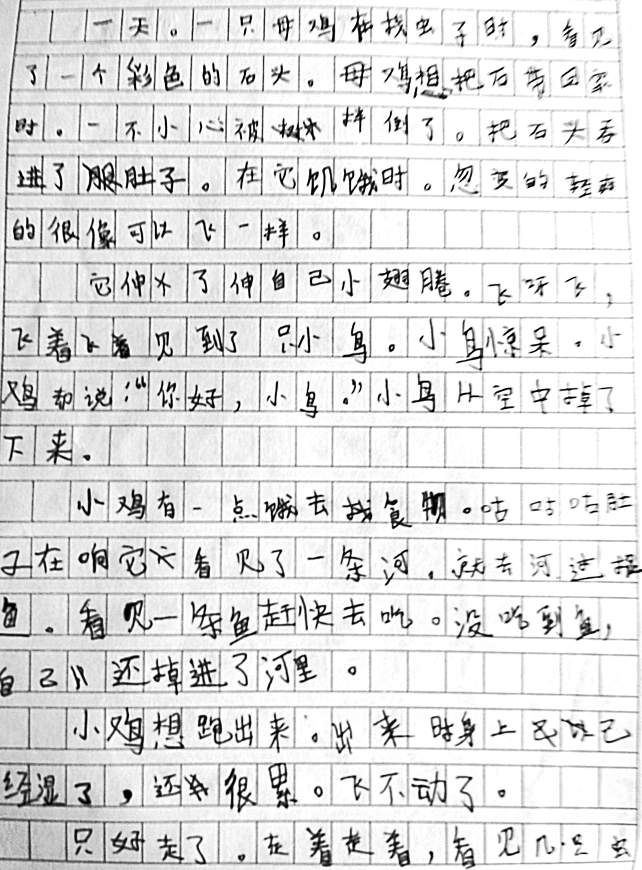 一天。一只母鸡在找虫子时，看见
了一个彩色的石头。母鸡想把石带回家
时。一不小心被拌倒了。把石头吞
进了肚子。在它饥饿时。忽变的轻爽
的很像可以飞一样。
它伸了伸自己小翅膀。飞呀飞，
飞着飞着见到了只小鸟。小鸟惊呆。小
鸡却说："你好，小鸟。"小鸟从空中掉了
下来。
小鸡有一点饿去找食物。咕咕咕肚
子在响它看见了一条河，就去河边捉
鱼。看见一条鱼赶快去吃。没吃到鱼，
自己还掉进了河里。
小鸡想跑出来。出来时身上已
经湿了，还很累。飞不动了。
只好走了。走着走着，看见几只虫